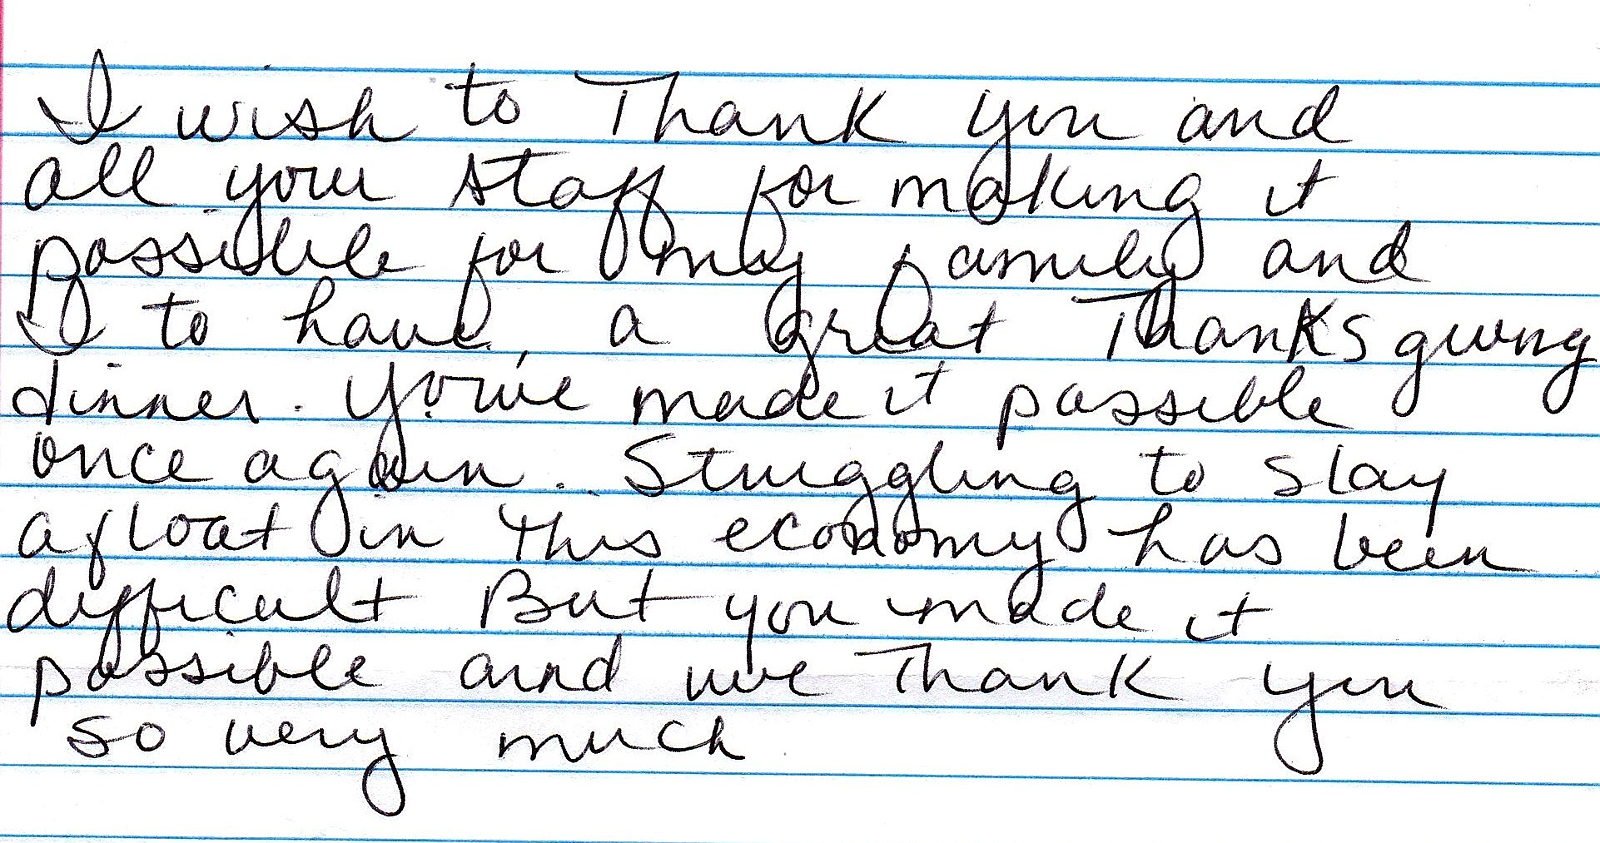 I wish to Thank you and
all your staff for making it
possible for my family and
I to have a great Thanksgiving
dinner. You've made it possible
once again. Struggling to stay
afloat in this economy has been
difficult But you made it
possible and we Thank you
so very much